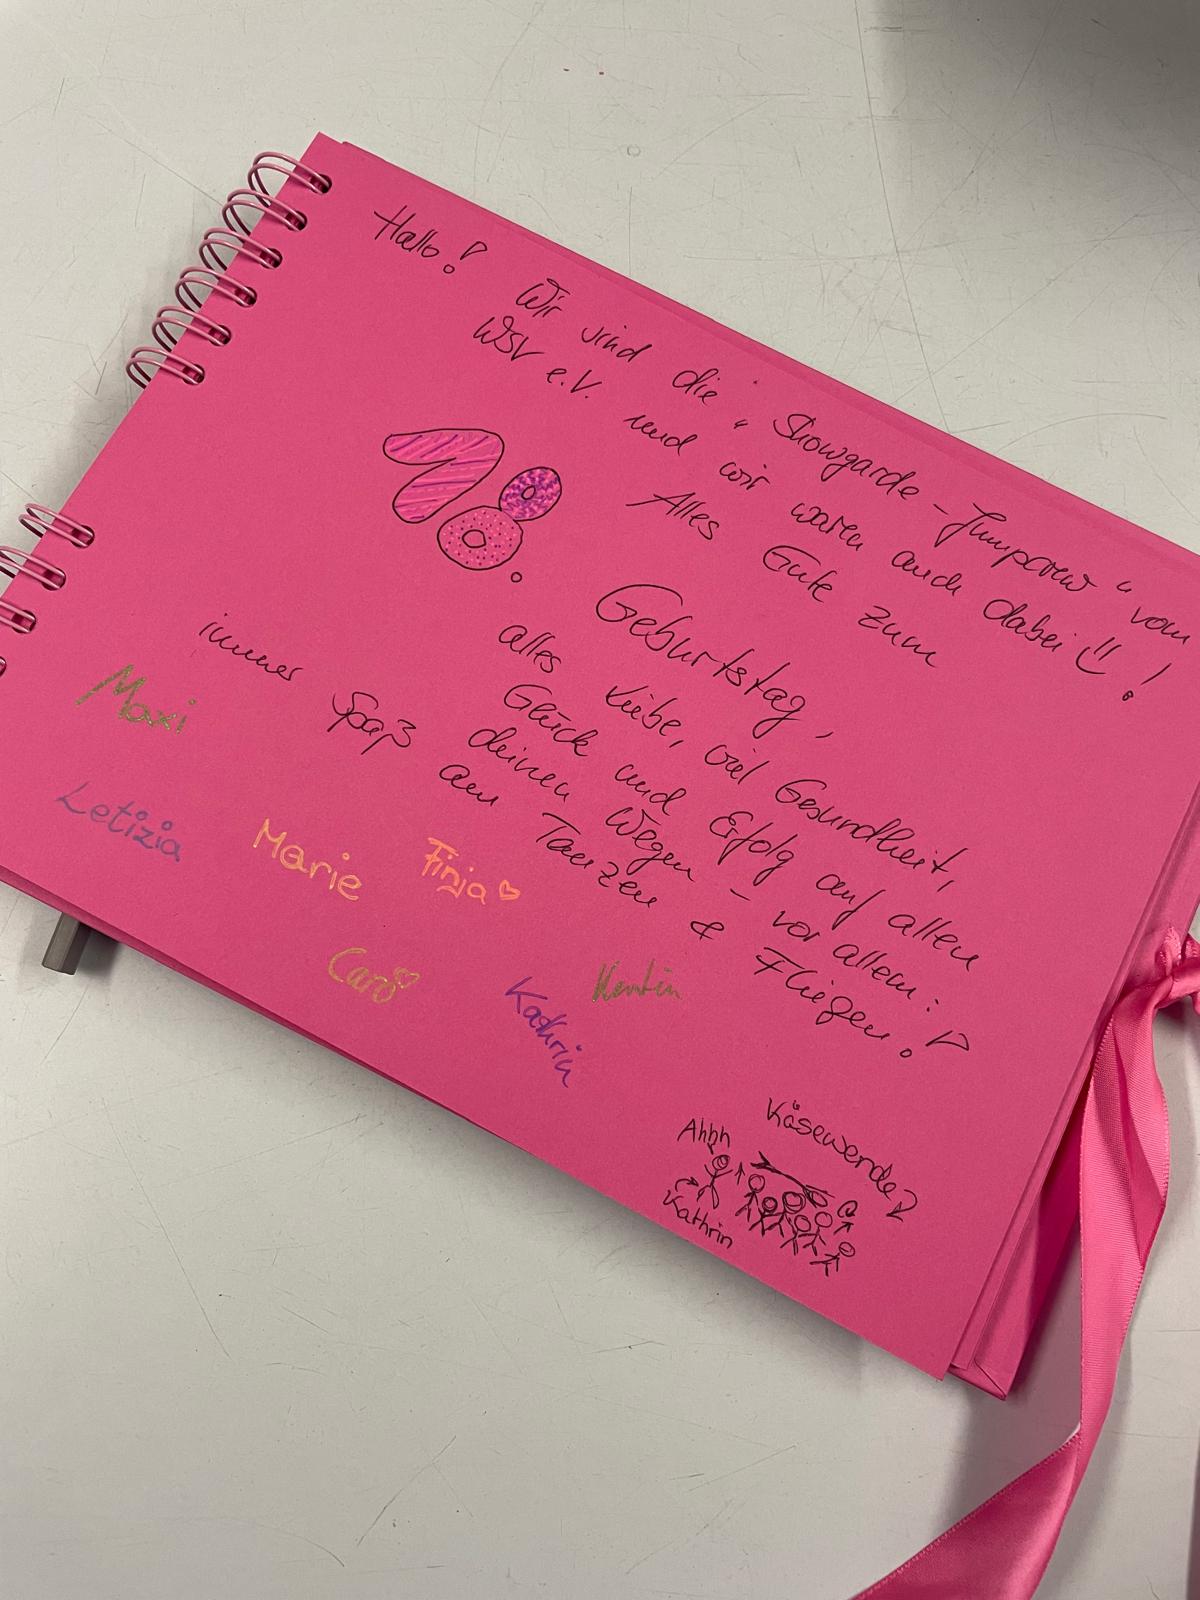 Hallo!
Wir sind die "Showgarde - Jumpcrew" vom
WSV e.V. und wir waren auch dabei !
Alles Gute zum
18.
Geburtstag,
alles Liebe, viel Gesundheit,
Glück und Erfolg auf allen
deinen Wegen - vor allem:
immer Spaß am Tanzen & Fliegen!
Maxi
Letizia
Marie
Finja
Caro
Kathrin
Ahhh
Käsewende
Kathrin